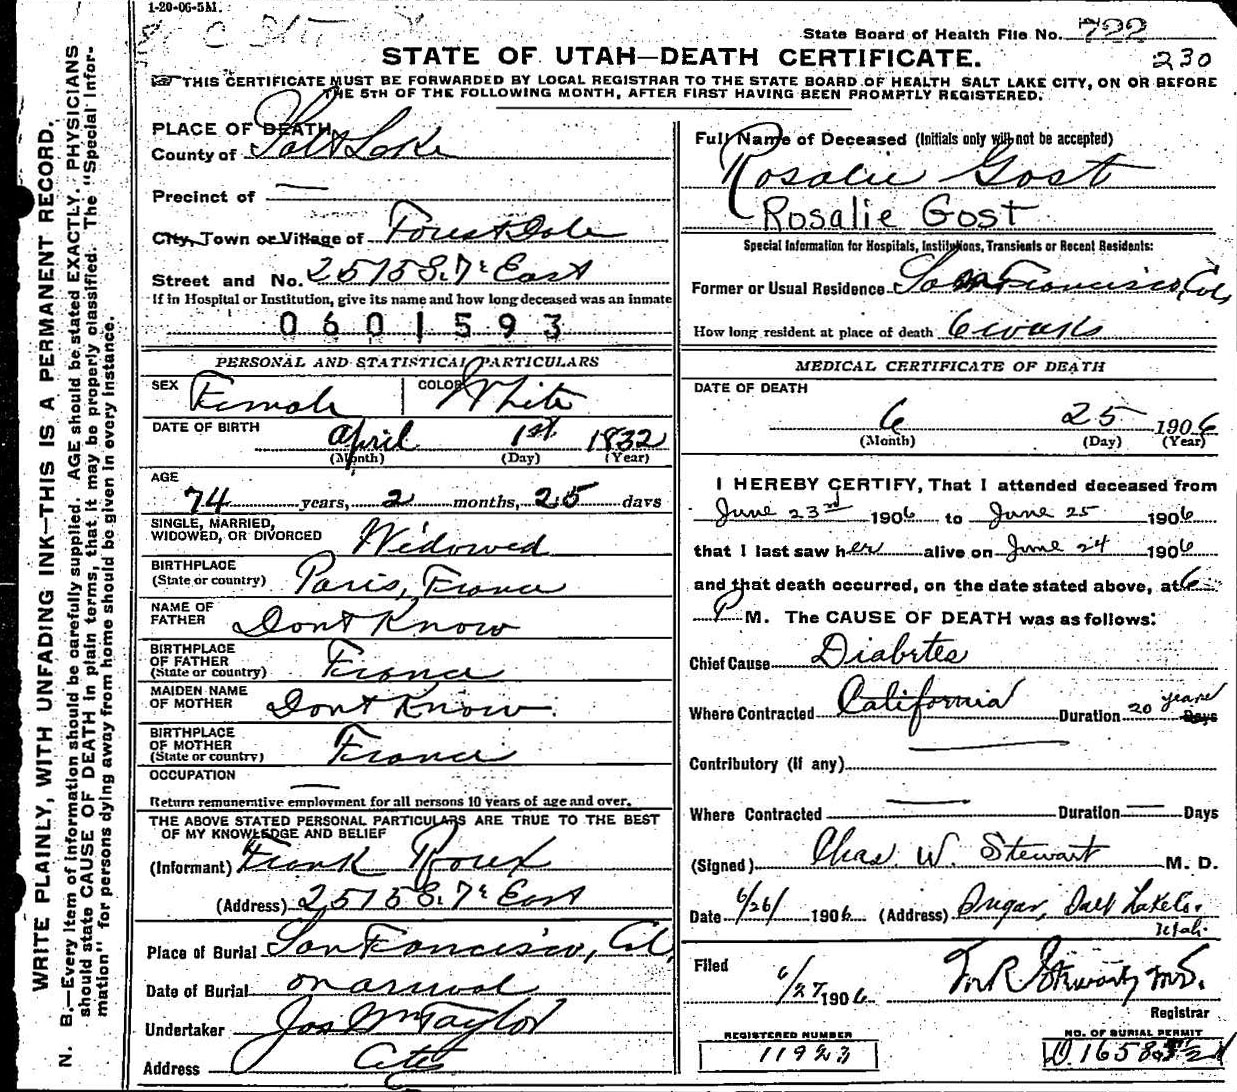 1-20-06-5M.
State Board of Health File No. 722
230
STATE OF UTAH—DEATH CERTIFICATE.
THIS CERTIFICATE MUST BE FORWARDED BY LOCAL REGISTRAR TO THE STATE BOARD OF HEALTH SALT LAKE CITY, ON OR BEFORE
THE 5TH OF THE FOLLOWING MONTH, AFTER FIRST HAVING BEEN PROMPTLY REGISTERED.
WRITE PLAINLY, WITH UNFADING INK—THIS IS A PERMANENT RECORD.
N. B.—Every item of information should be carefully supplied. AGE should be stated EXACTLY. PHYSICIANS
should state CAUSE OF DEATH in plain terms, that it may be properly classified. The "Special Infor-
mation" for persons dying away from home should be given in every instance.
PLACE OF DEATH
County of Salt Lake
Precinct of —
City, Town or Village of Forest Dale
Street and No. 2515 S. 7th East
If in Hospital or Institution, give its name and how long deceased was an inmate
0601593
PERSONAL AND STATISTICAL PARTICULARS
SEX Female COLOR White
DATE OF BIRTH
April 1st 1832
(Month) (Day) (Year)
AGE
74 years, 2 months, 25 days
SINGLE, MARRIED,
WIDOWED, OR DIVORCED Widowed
BIRTHPLACE
(State or country) Paris, France
NAME OF
FATHER Dont Know
BIRTHPLACE
OF FATHER
(State or country) France
MAIDEN NAME
OF MOTHER Dont Know.
BIRTHPLACE
OF MOTHER
(State or country) France
OCCUPATION —
Return remunerative employment for all persons 10 years of age and over.
THE ABOVE STATED PERSONAL PARTICULARS ARE TRUE TO THE BEST
OF MY KNOWLEDGE AND BELIEF
(Informant) Frank Roux
(Address) 2515 S. 7th East
Place of Burial San Francisco, Cal,
Date of Burial on arrival
Undertaker Jos Wm Taylor
Address City
Full Name of Deceased (Initials only will not be accepted)
Rosalie Gost
Rosalie Gost
Special Information for Hospitals, Institutions, Transients or Recent Residents:
Former or Usual Residence San Francisco, Cal
How long resident at place of death 6 weeks
MEDICAL CERTIFICATE OF DEATH
DATE OF DEATH
6 25 1906
(Month) (Day) (Year)
I HEREBY CERTIFY, That I attended deceased from
June 23rd 1906 to June 25 1906
that I last saw her alive on June 24 1906
and that death occurred, on the date stated above, at 6
P M. The CAUSE OF DEATH was as follows:
Chief Cause Diabetes
Where Contracted California Duration 20 years Days
Contributory (if any) —
Where Contracted — Duration — Days
(Signed) Chas. W. Stewart M. D.
Date 6/26/ 1906 (Address) Sugar, Salt Lake Co.
Utah.
Filed 6/27 1906 Stewart
Registrar
REGISTERED NUMBER
11923
NO. OF BURIAL PERMIT